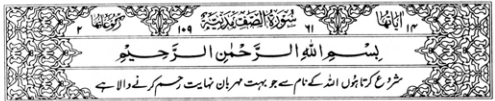 اٰیاتُها ۱۴ ۶۱ سُوۡرَةُ الصَّفِّ مَدَنِیَّةٌ ۱۰۹ رکوعاتها ۲
بِسۡمِ اللّٰهِ الرَّحۡمٰنِ الرَّحِیۡمِ
شروع کرتا ہوں اللہ کے نام سے جو بہت مہربان نہایت رحم کرنے والا ہے